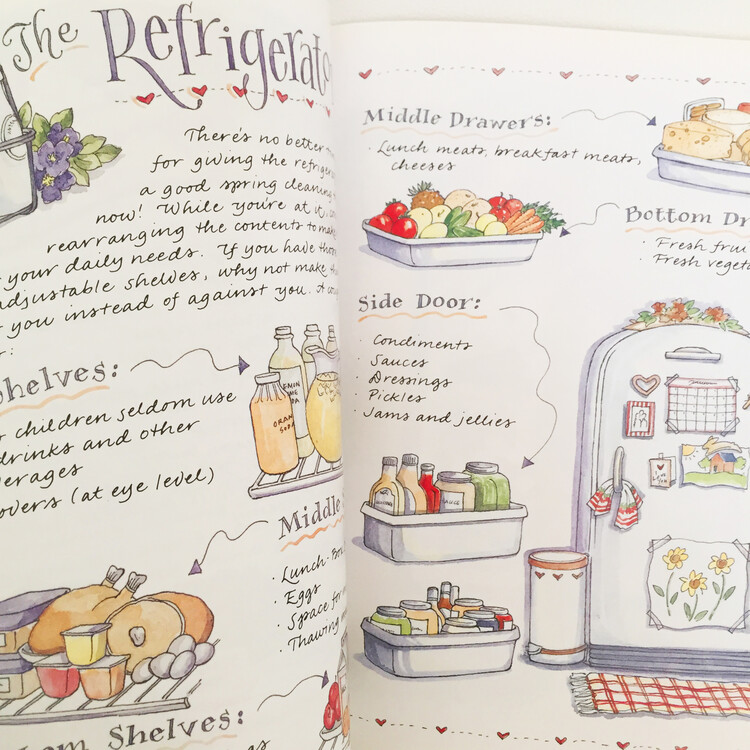 The Refrigerato
There's no better
for giving the refriger
a good spring cleaning
now! While you're at it,
rearranging the contents to make
your daily needs. If you have
adjustable shelves, why not make
you instead of against you. A
Shelves:
children seldom use
drinks and other
erages
overs (at eye level)
ORAN
SODA
Middle
· Lunch
· Eggs
· Space for
· Thawing
om Shelves:
Middle Drawers:
· Lunch meats, breakfast meats,
cheeses
Bottom Dr
· Fresh frui
· Fresh veget
Side Door:
· Condiments
· Sauces
· Dressings
· Pickles
· Jams and jellies
SAUCE